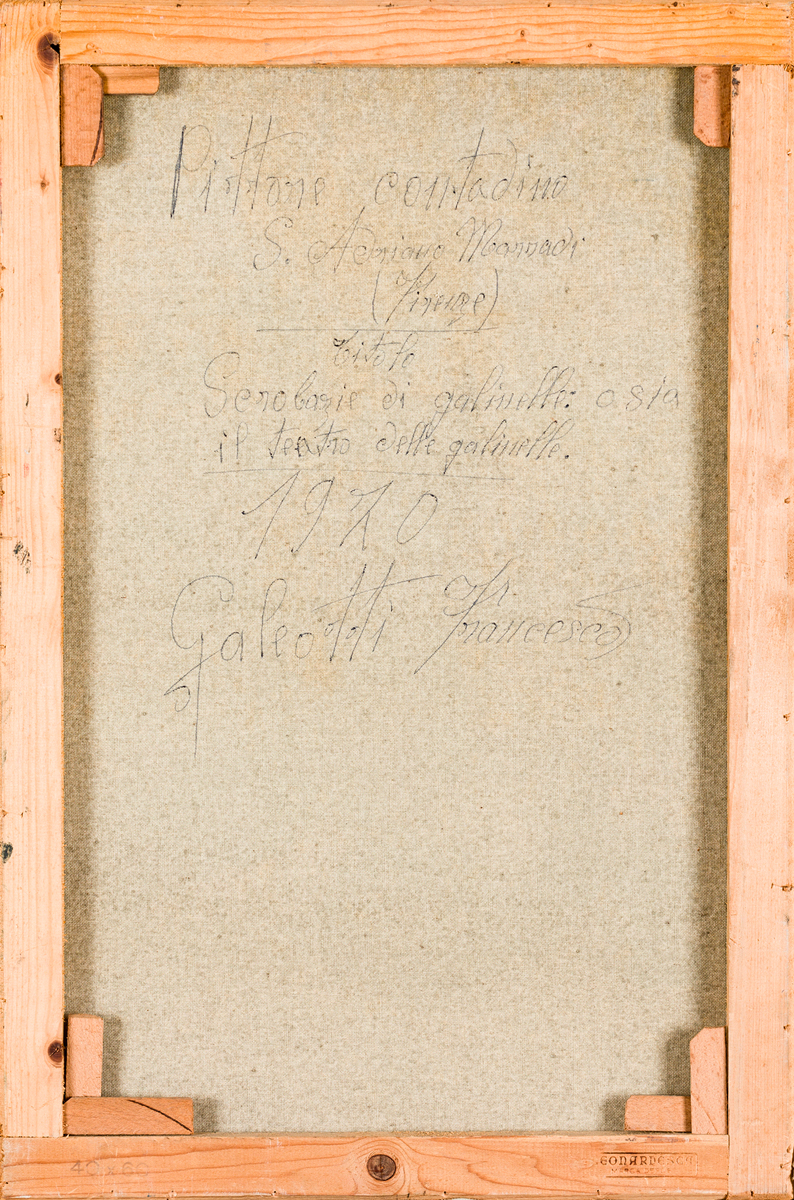 Pittore contadino
S. Adriano Marradi
(Firenze)
titolo
Scrobazie di galinelle: osia
il teatro delle galinelle.
1970
Galeotti Francesco
LEONARDESCA